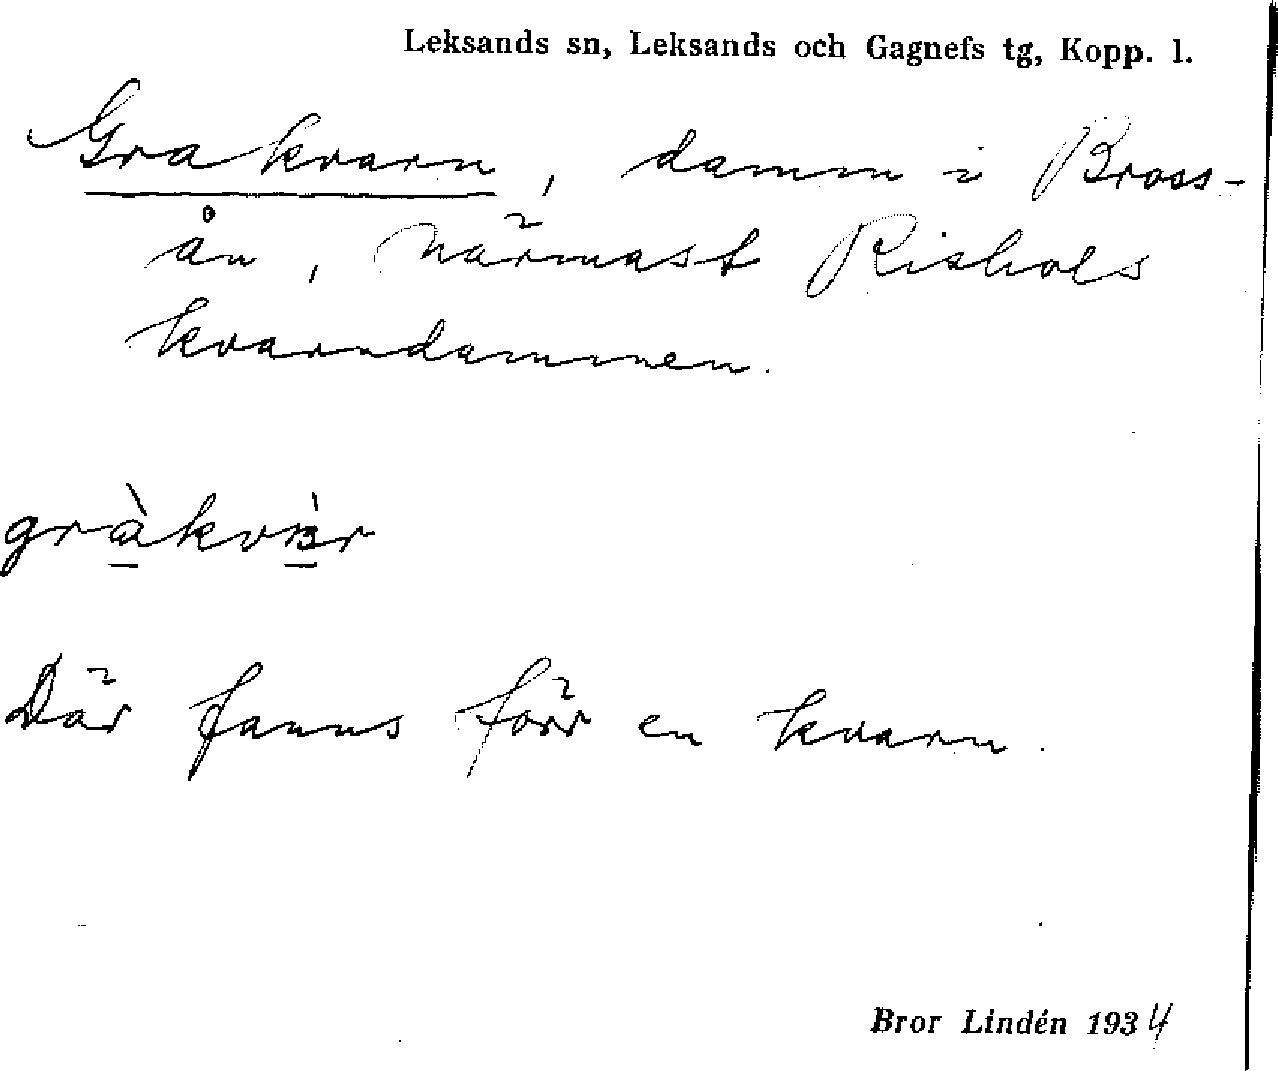 Leksands sn, Leksands och Gagnefs tg, Kopp. l.
Gra kvarn, damm i Bross-
ån, närmast Rishols
kvarndammen.
Där fanns förr en kvarn.
Bror Lindén 1934